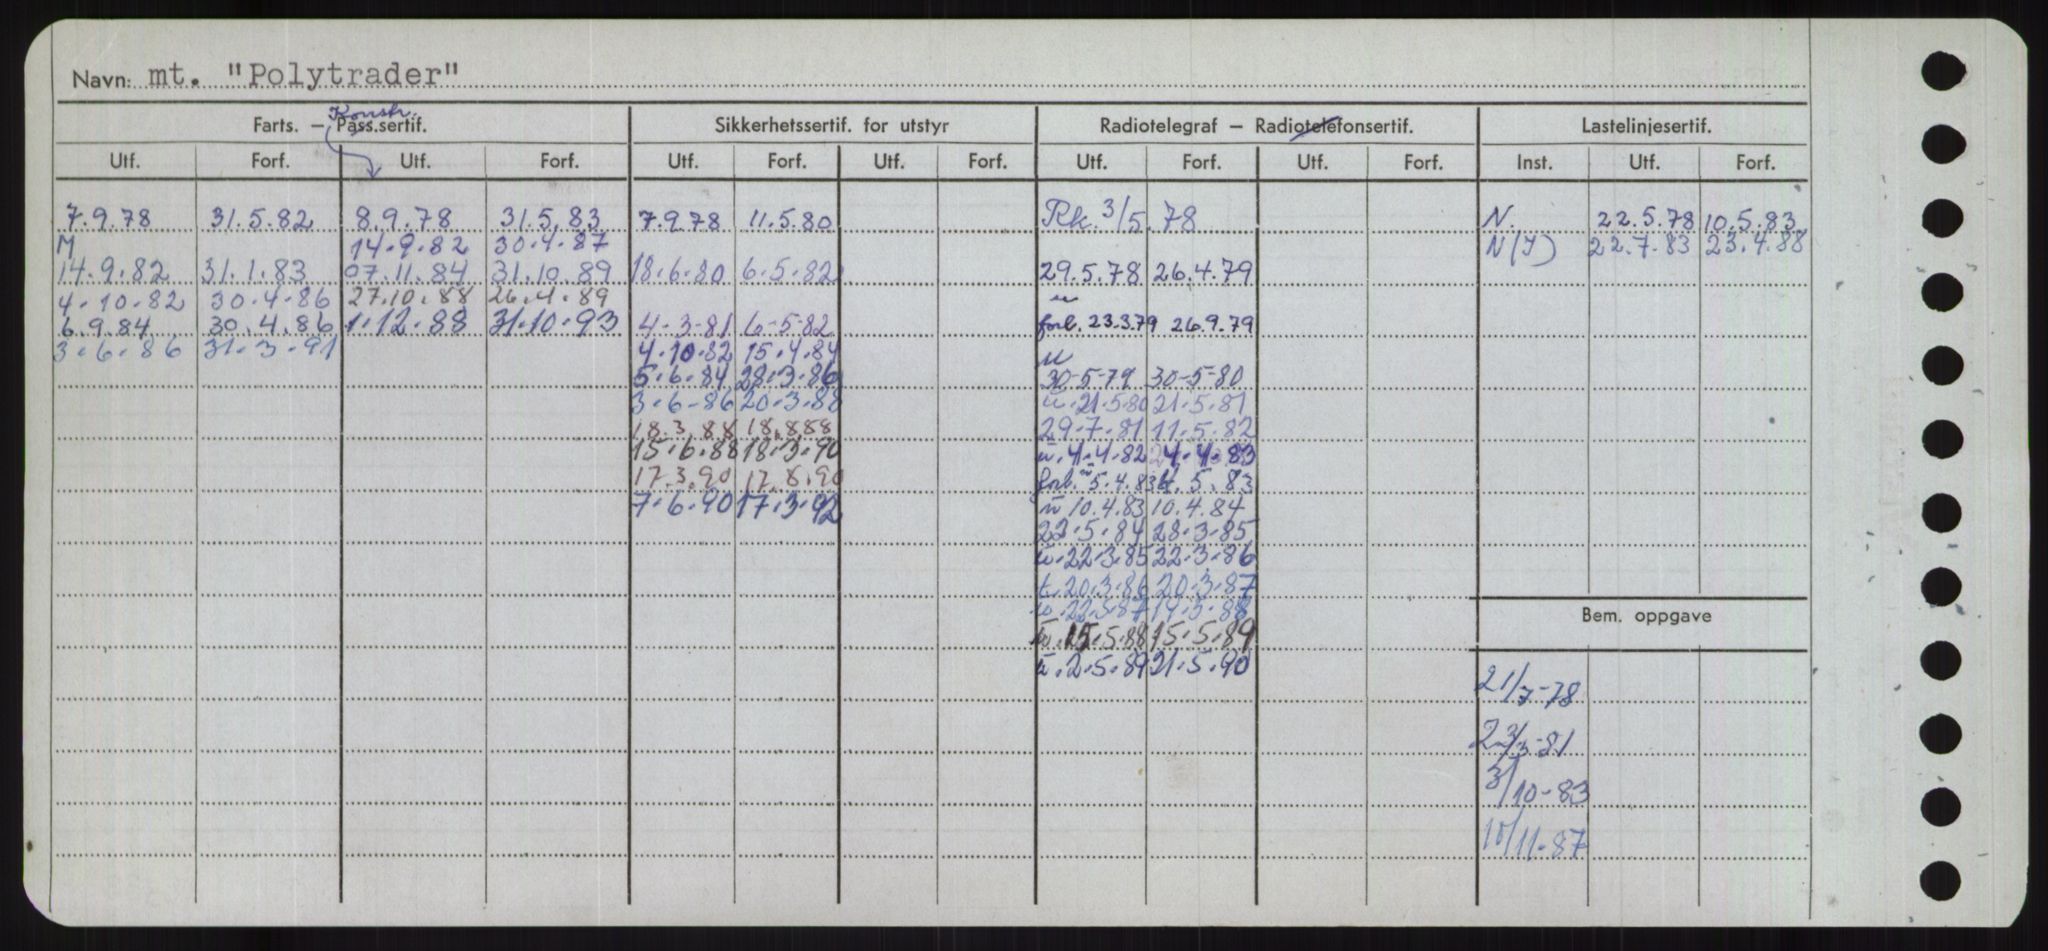 Navn: mt. "Polytrader"
Konstr.
Farts. – Pass.sertif. Sikkerhetssertif. for utstyr Radiotelegraf – Radiotelefonsertif. Lastelinjesertif.
Utf. Forf. Utf. Forf. Utf. Forf. Utf. Forf. Utf. Forf. Utf. Forf. Inst. Utf. Forf.
7.9.78 31.5.82 8.9.78 31.5.83 7.9.78 11.5.80 Rk. 3/5.78 N. 22.5.78 10.5.83
M 14.9.82 30.4.87 N(I) 22.7.83 23.4.88
14.9.82 31.1.83 07.11.84 31.10.89 18.6.80 6.5.82 29.5.78 26.4.79
4.10.82 30.4.86 27.10.88 26.4.89
6.9.84 30.4.86 1.12.88 31.10.93 4-3-81 6-5-82 forl. 23.3.79 26.9.79
3.6.86 31.3.91 4.10.82 15.4.84
5.6.84 28.3.86 30-5-79 30-5-80
3.6.86 20.3.88 21.5.80 21.5.81
18.3.88 18.8.88 29.7.81 11.5.82
15.6.88 18.3.90 4.4.82 4.4.83
17.3.90 17.8.90 forl. 5.4.83 4.5.83
7.6.90 17.3.92 10.4.83 10.4.84
22.5.84 28.3.85
22.3.85 22.3.86
t.20.3.86 20.3.87
22.3.87 19.3.88
Bem. oppgave
15.5.88 15.5.89
2.5.89 21.5.90
21/7-78
23/3-81
3/10-83
10/11-87